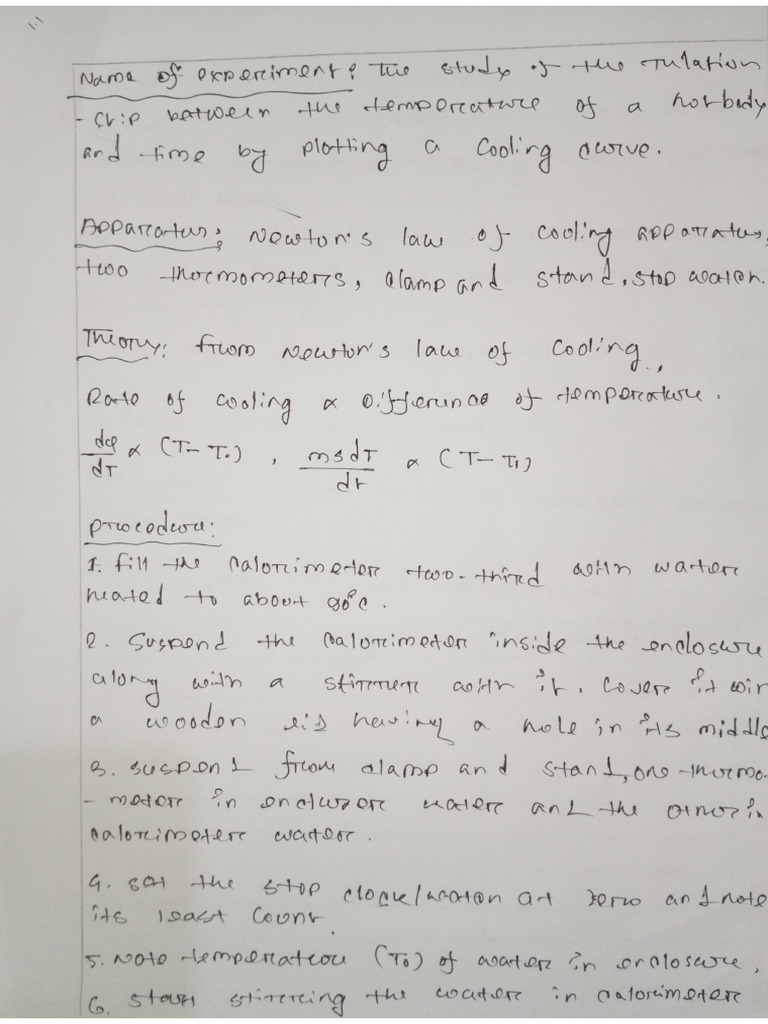 1.1
Name of experiment: The study of the relation
-ship between the temperature of a hotbody
and time by plotting a cooling curve.
Apparatus: Newton's law of cooling apparatus,
two thermometers, clamp and stand, stop watch.
Theory: from Newton's law of cooling,
Rate of cooling ∝ Difference of temperature.
dφ/dT ∝ (T - T₀), msdT/dt ∝ (T - T₁)
procedure:
1. fill the calorimeter two-third with water
heated to about 90°c.
2. Suspend the calorimeter inside the enclosure
along with a stirrer with it. Cover it wit
a wooden lid having a hole in its middle
3. suspend from clamp and stand, one thermo-
-meter in encluser water and the other in
calorimeter water.
4. set the stop clock/watch at zero and note
its least count.
5. Note temperature (T₀) of water in enclosure,
6. start stirring the water in calorimeter